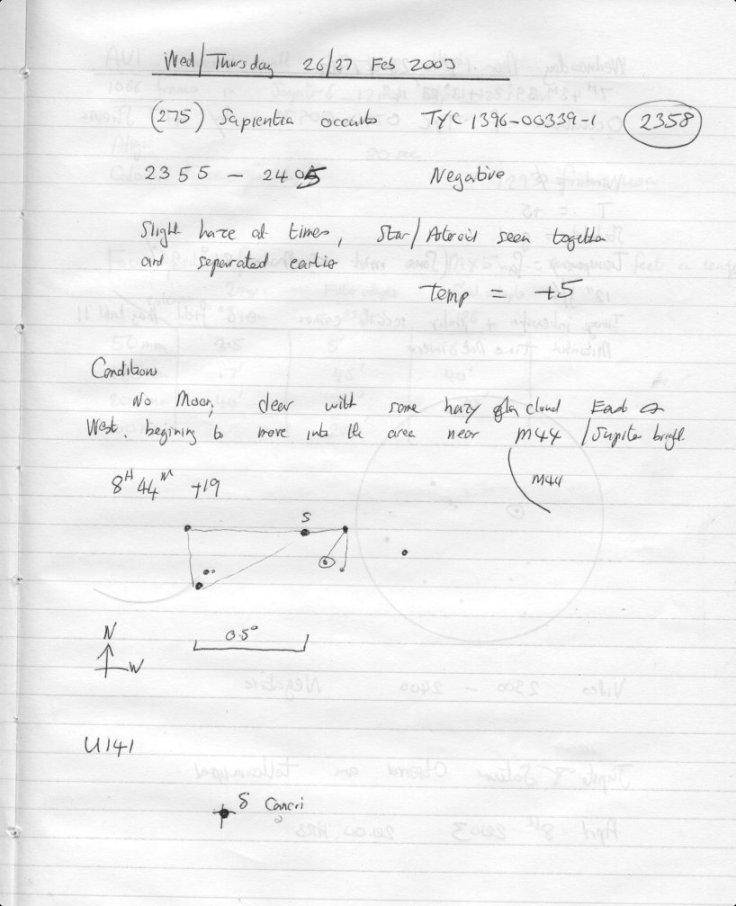 Wed/Thursday 26/27 Feb 2003
(275) Sapientia occults TYC 1396-00339-1 2358
2355 - 2405 Negative
Slight haze at times, Star/Asteroid seen together
and separated earlier
Temp = +5
Conditions
No Moon, clear with some hazy cloud East &
West, begining to move into the area near M44 / Jupiter bright
8H 44M +19
M44
S
0.5°
N
W
U141
δ Cancri